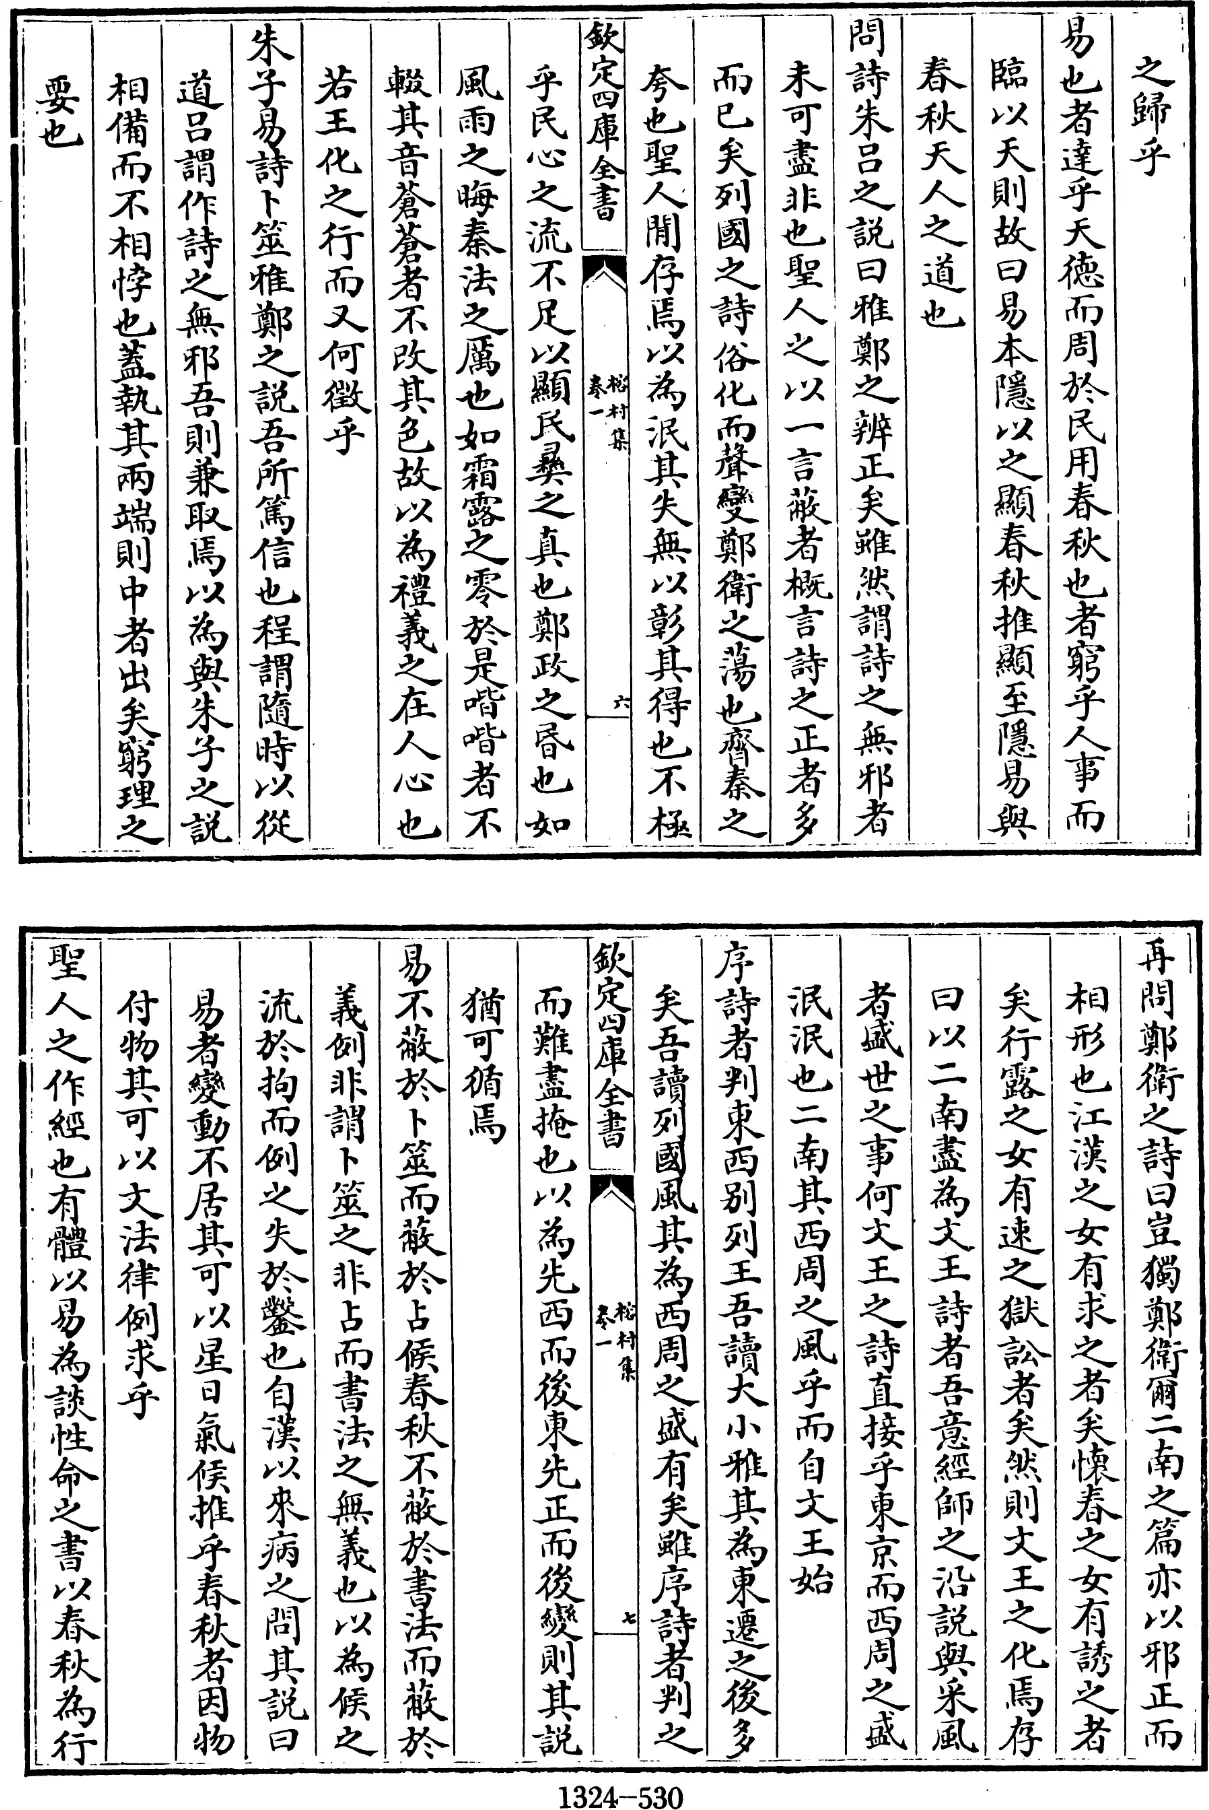 之歸乎
易也者達乎天德而周於民用春秋也者窮乎人事而
臨以天則故曰易本隱以之顯春秋推顯至隱易與
春秋天人之道也
問詩朱呂之説曰雅鄭之辨正矣雖然謂詩之無邪者
未可盡非也聖人之以一言蔽者概言詩之正者多
而已矣列國之詩俗化而聲變鄭衛之蕩也齊秦之
夸也聖人間存焉以為泯其失無以彰其得也不極
欽定四庫全書
榕村集
卷一
六
乎民心之流不足以顯民彞之真也鄭政之昬也如
風雨之晦秦法之厲也如霜露之零於是喈喈者不
輟其音蒼蒼者不改其色故以為禮義之在人心也
若王化之行而又何徵乎
朱子易詩卜筮雅鄭之説吾所篤信也程謂隨時以從
道呂謂作詩之無邪吾則兼取焉以為與朱子之説
相備而不相悖也蓋執其兩端則中者出矣窮理之
要也
再問鄭衛之詩曰豈獨鄭衛爾二南之篇亦以邪正而
相形也江漢之女有求之者矣懐春之女有誘之者
矣行露之女有速之獄訟者矣然則文王之化焉存
曰以二南盡為文王詩者吾意經師之沿説與采風
者盛世之事何文王之詩直接乎東京而西周之盛
泯泯也二南其西周之風乎而自文王始
序詩者判東西别列王吾讀大小雅其為東遷之後多
矣吾讀列國風其為西周之盛有矣雖序詩者判之
欽定四庫全書
榕村集
卷一
七
而難盡掩也以為先西而後東先正而後變則其説
猶可循焉
易不蔽於卜筮而蔽於占候春秋不蔽於書法而蔽於
義例非謂卜筮之非占而書法之無義也以為候之
流於拘而例之失於鑿也自漢以來病之問其説曰
易者變動不居其可以星日氣候推乎春秋者因物
付物其可以文法律例求乎
聖人之作經也有體以易為談性命之書以春秋為行
1324-530